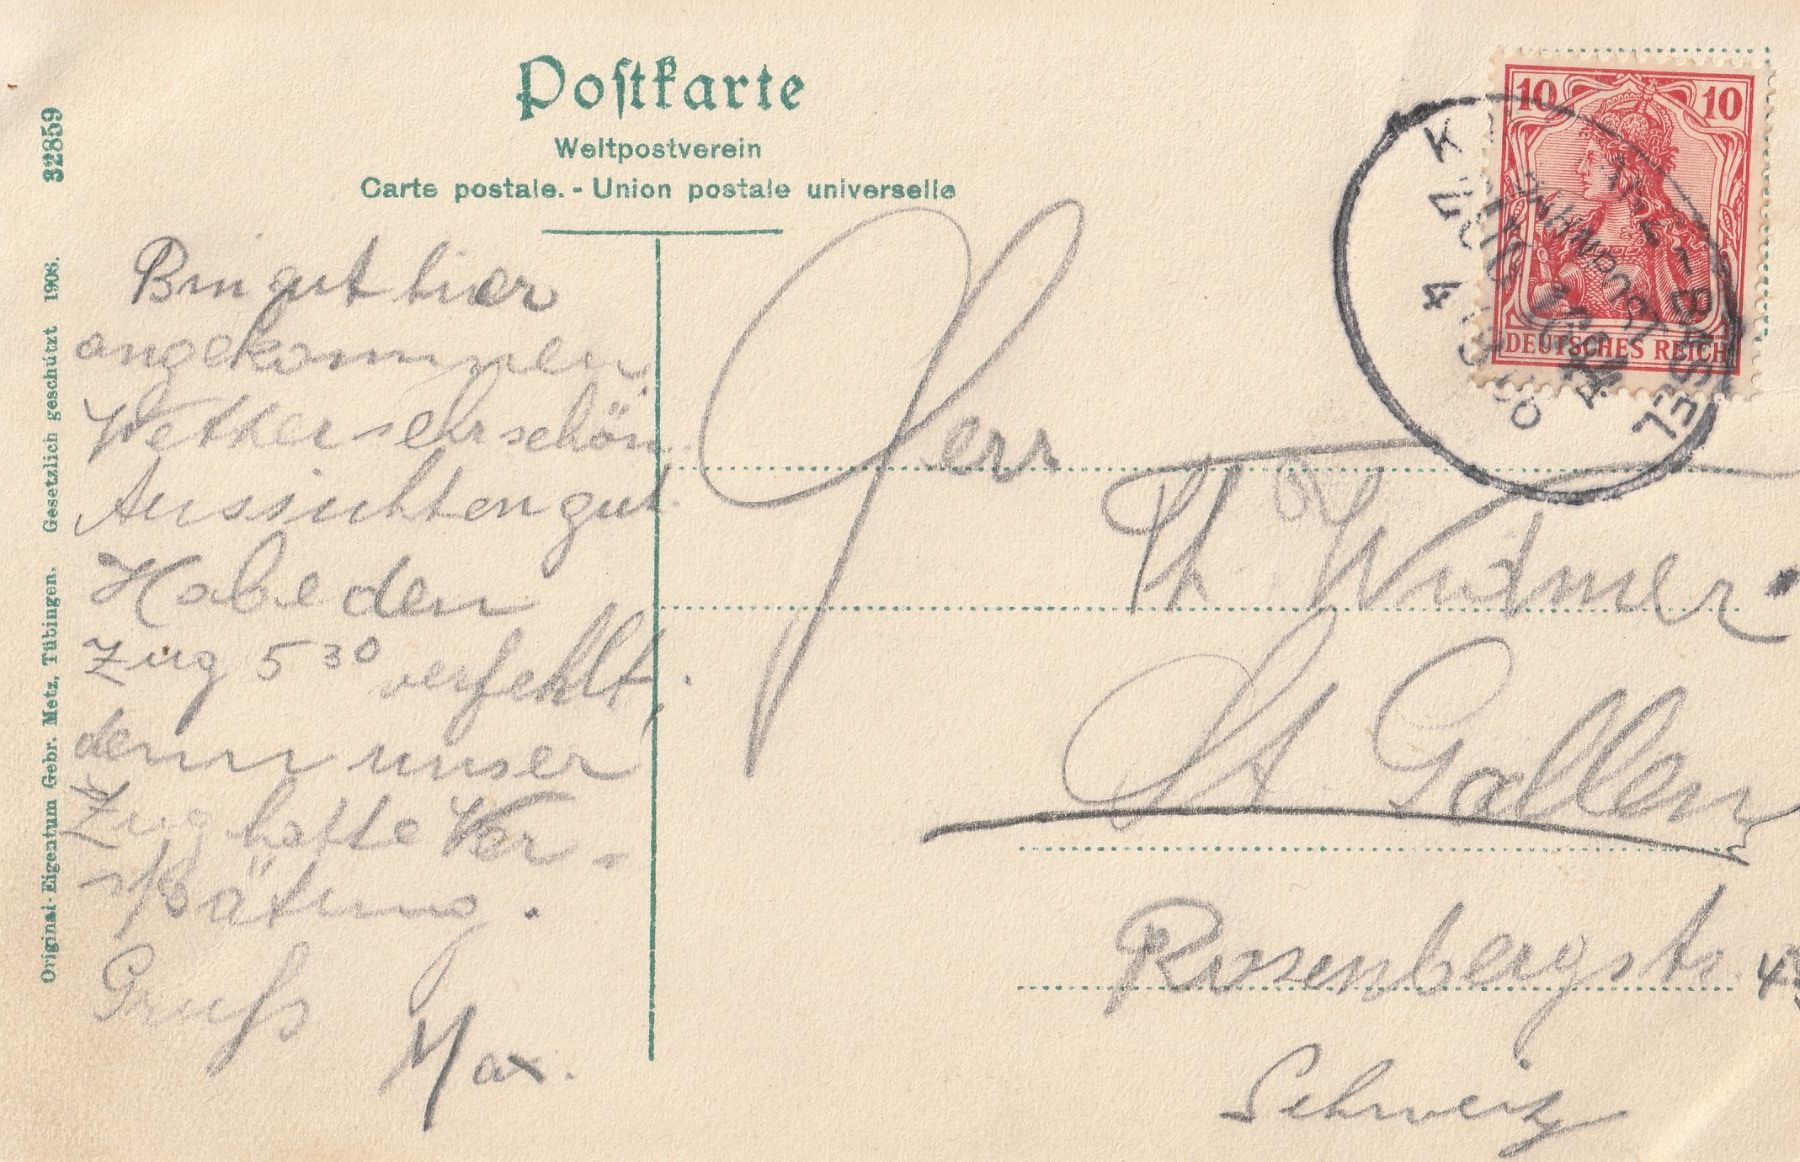 Postkarte
Weltpostverein
Carte postale. - Union postale universelle
32859
Original-Eigentum Gebr. Metz, Tübingen. Gesetzlich geschützt 1906.
10 10
DEUTSCHES REICH
BAHNPOST
ZUG
4
Bin gut hier
angekommen.
Wetter sehr schön
Aussichten gut.
Habe den
Zug 5 30 verfehlt,
denn unser
Zug hatte Ver-
spätung.
Gruß
Max.
Herr
Th Widmer
St. Gallen
Rosenbergstr.
Schweiz